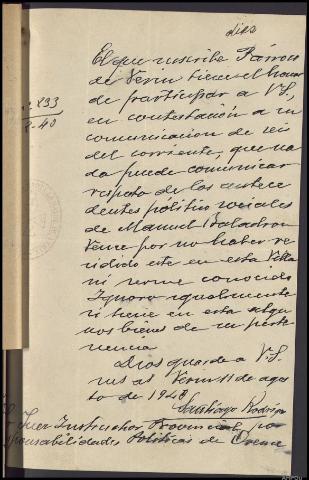 diez
El que suscribe Párroco
de Verin tiene el honor
de participar a V.S.,
en contestación a su
comunicacion de seis
del corriente, que na
da puede comunicar
respeto de los antece
dentes político sociales
de Manuel Baladron
Vence por no haber re
sidido este en esta Villa
ni serme conocido
Ignoro igualmente
si tiene en esta algu
nos bienes de su perte
nencia
Dios guarde a V.S.
ms as Verin 11 de agos
to de 194
Santiago Rodrig
Juez Instructor Provincial por
sponsabilidades Políticas de Orense
233
8-40